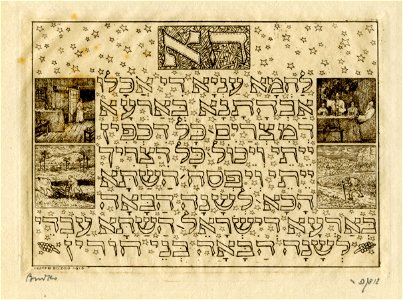 הא
לחמא עניא די אכלו
אבהתנא בארעא
דמצרים כל דכפין
ייתי ויכול כל דצריך
ייתי ויפסח השתא
הכא לשנה הבאה
בארעא דישראל השתא עבדי
לשנה הבאה בני חורין
JOSEPH BUDKO
Budko